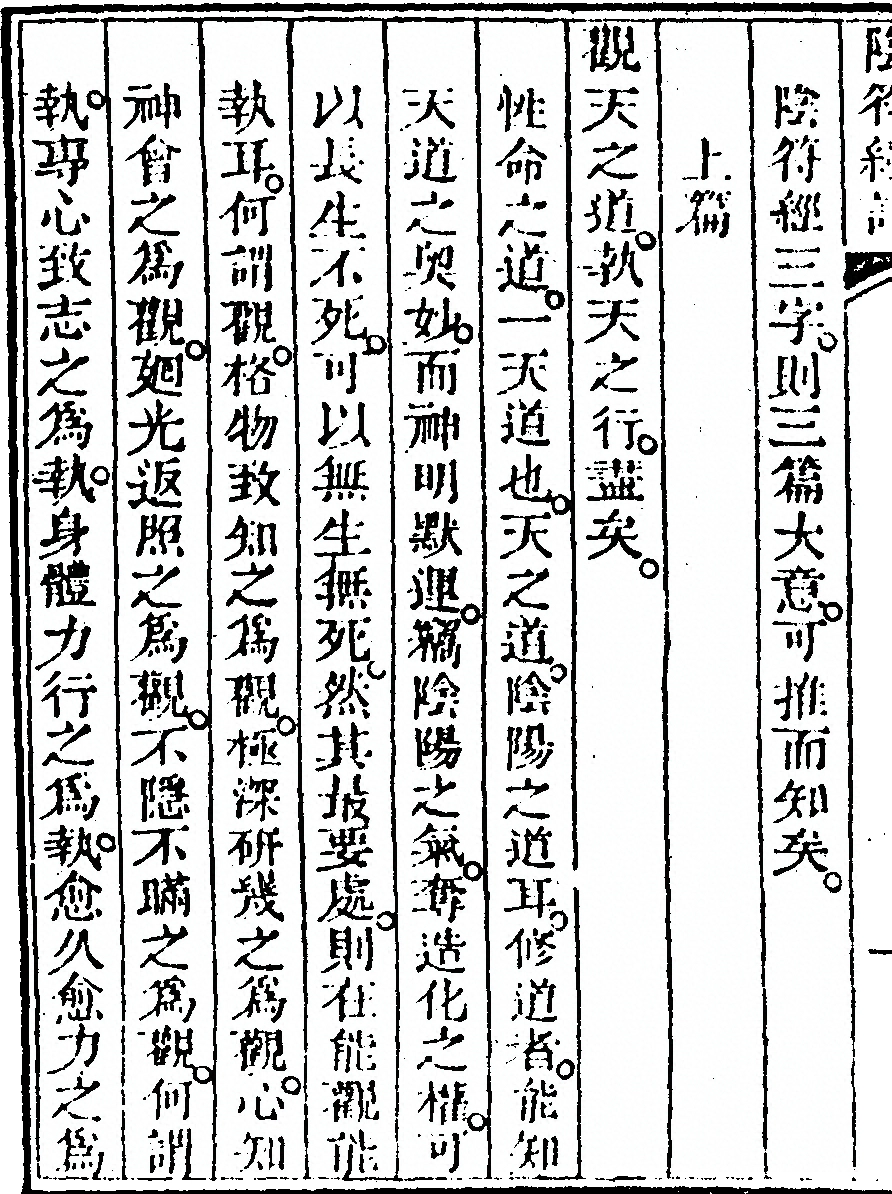 陰符經
陰符經三字。則三篇大意。可推而知矣。
上篇
觀天之道。執天之行。盡矣。
性命之道。一天道也。天之道。陰陽之道耳。修道者。能知
天道之奧妙。而神明默運。竊陰陽之氣。奪造化之權。可
以長生不死。可以無生無死。然其最要處。則在能觀能
執耳。何謂觀。格物致知之爲觀。極深研幾之爲觀。心知
神會之爲觀。廻光返照之爲觀。不隱不瞞之爲觀。何謂
執。專心致志之爲執。身體力行之爲執。愈久愈力之爲
一